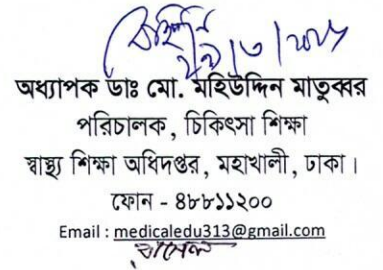 অধ্যাপক ডাঃ মো. মহিউদ্দিন মাতুব্বর
পরিচালক, চিকিৎসা শিক্ষা
স্বাস্থ্য শিক্ষা অধিদপ্তর, মহাখালী, ঢাকা।
ফোন - ৪৮৮১১২০০
Email : medicaledu313@gmail.com